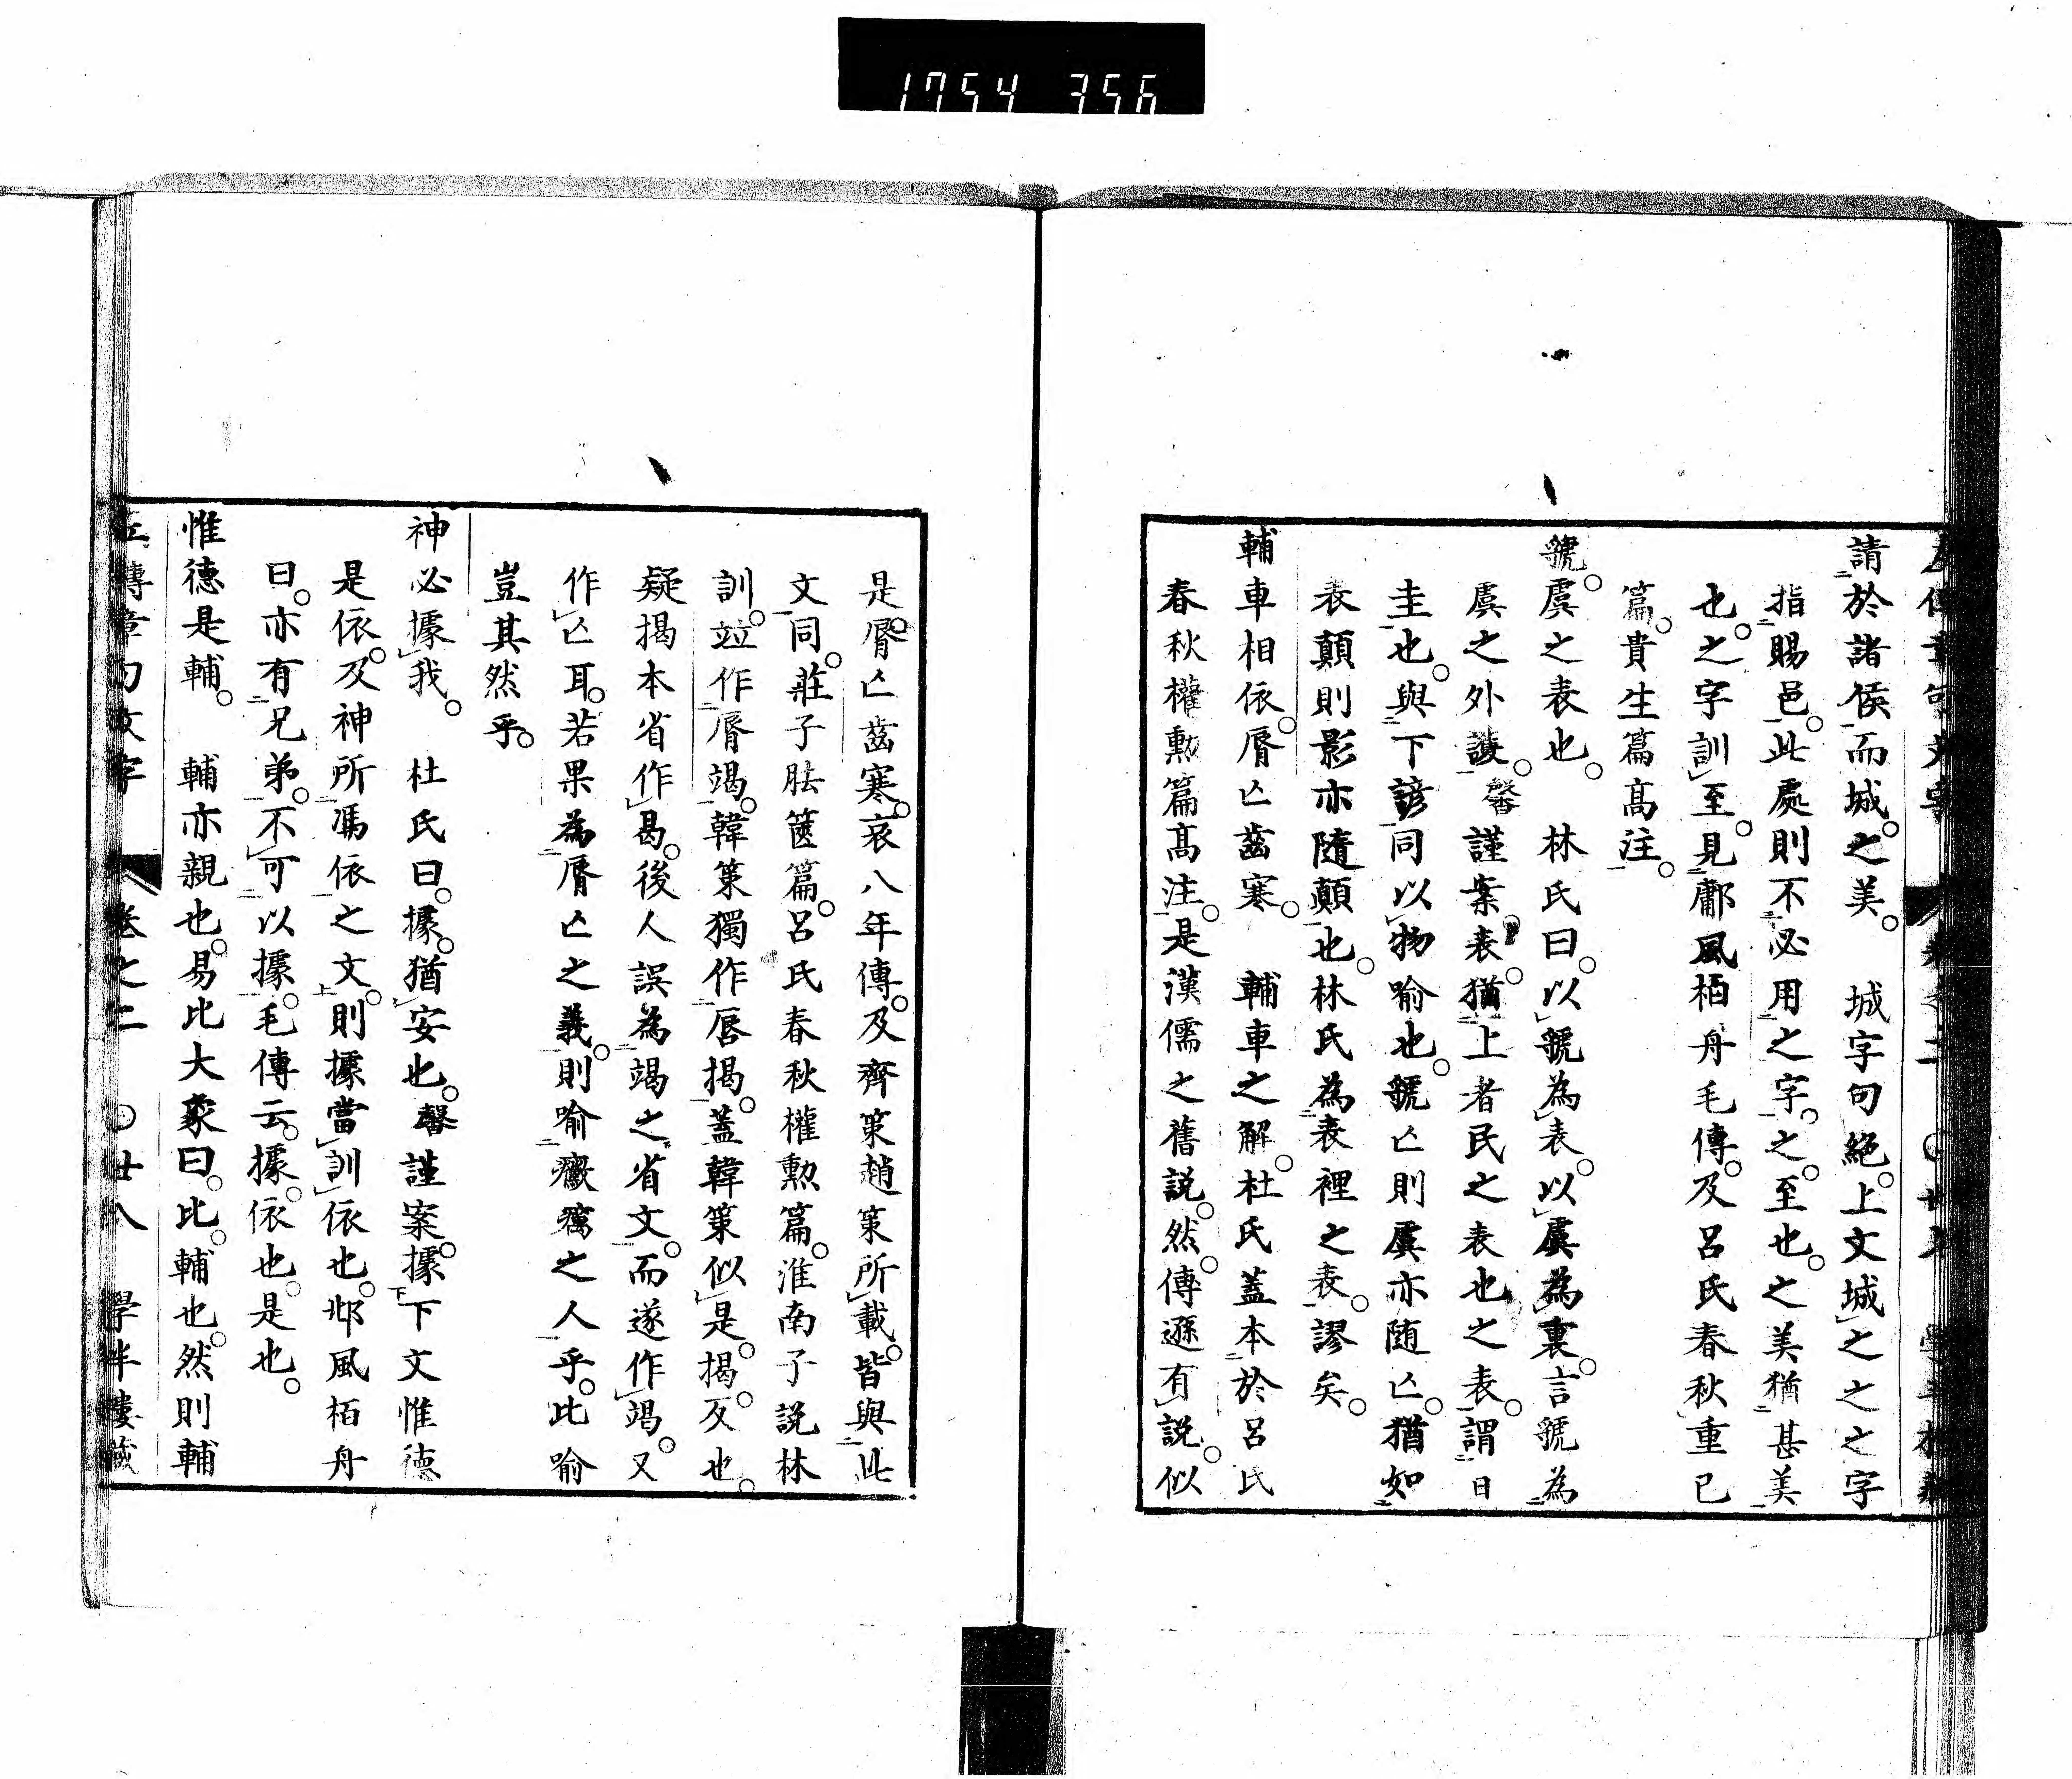 1754 356
請於諸侯而城之美。　城字句絕。上文城之之之字
指賜邑。此處則不必用之字。之至也。之美猶甚美
也。之字訓至。見鄘風栢舟毛傳。及呂氏春秋重己
篇。貴生篇髙注。
虢。虞之表也。　林氏曰。以虢為表。以虞為裏。言虢為
虞之外護。馨謹案。表猶上者民之表也之表。謂日
圭也。與下諺同以物喻也。虢亾則虞亦随亾。猶如
表顛則影亦隨顛也。林氏為表裡之表。謬矣。
輔車相依。脣亾齒寒。　輔車之解。杜氏蓋本於呂氏
春秋權勲篇髙注。是漢儒之舊説。然。傳遜有説。似
是。脣亾齒寒。哀八年傳。及齊策趙策所載。皆與此
文同。莊子胠篋篇。呂氏春秋權勲篇。淮南子説林
訓。竝作脣竭。韓策獨作唇揭。蓋韓策似是。揭。反也。
疑揭本省作曷。後人誤為竭之省文。而遂作竭。又
作亾耳。若果為脣亾之義。則喻癥癘之人乎。比喻
豈其然乎。
神必據我。　杜氏曰。據。猶安也。馨謹案。據下文惟德
是依。及神所馮依之文。則據當訓依也。邶風栢舟
曰。亦有兄弟。不可以據。毛傳云。據。依也。是也。
惟德是輔。　輔亦親也。易比大象曰。比。輔也。然則輔
左傳章句文字　卷之二　〇廿八　學半樓藏